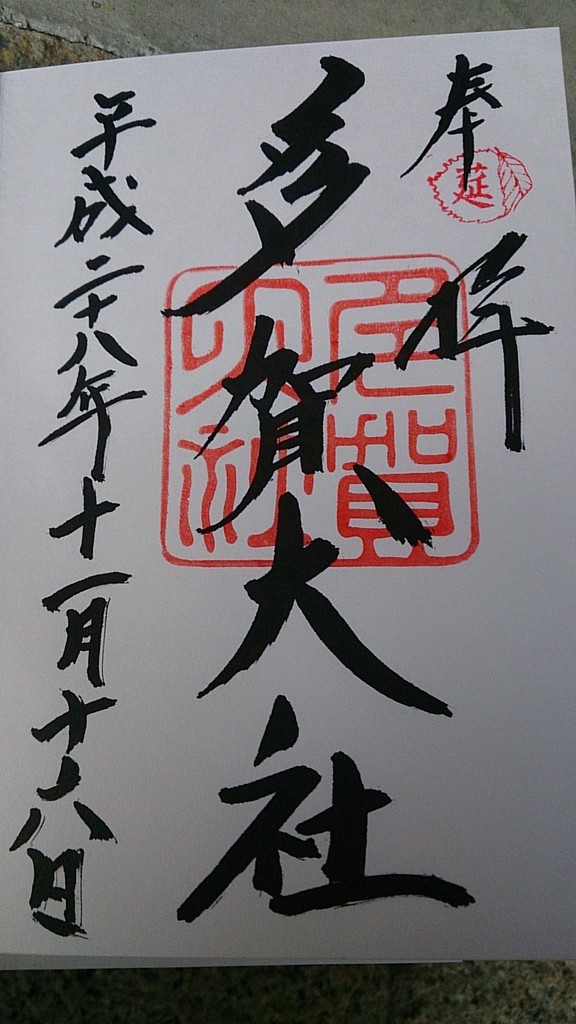 奉拝
莚
多賀大社
多賀大社
平成二十八年十一月十六日